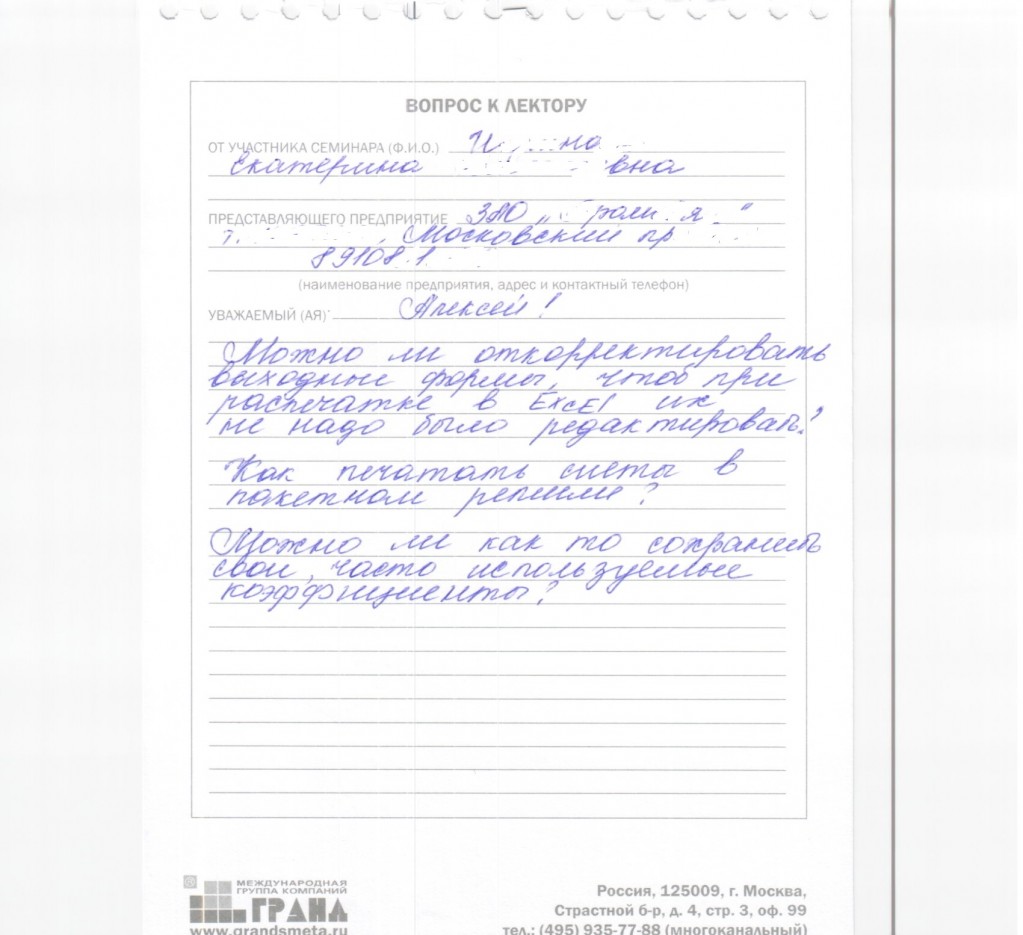 ВОПРОС К ЛЕКТОРУ
ОТ УЧАСТНИКА СЕМИНАРА (Ф.И.О.)
Екатерина вна
ПРЕДСТАВЛЯЮЩЕГО ПРЕДПРИЯТИЕ ЗАО
г. Московский пр
89108 1
(наименование предприятия, адрес и контактный телефон)
УВАЖАЕМЫЙ (АЯ) Алексей!
Можно ли откорректировать
выходные формы, чтоб при
распечатке в Excel их
не надо было редактировать?
Как печатать сметы в
пакетном режиме?
Можно ли как то сохранить
свои, часто используемые
коэффициенты?
МЕЖДУНАРОДНАЯ
ГРУППА КОМПАНИЙ
ГРАНД
www.grandsmeta.ru
Россия, 125009, г. Москва,
Страстной б-р, д. 4, стр. 3, оф. 99
тел.: (495) 935-77-88 (многоканальный)